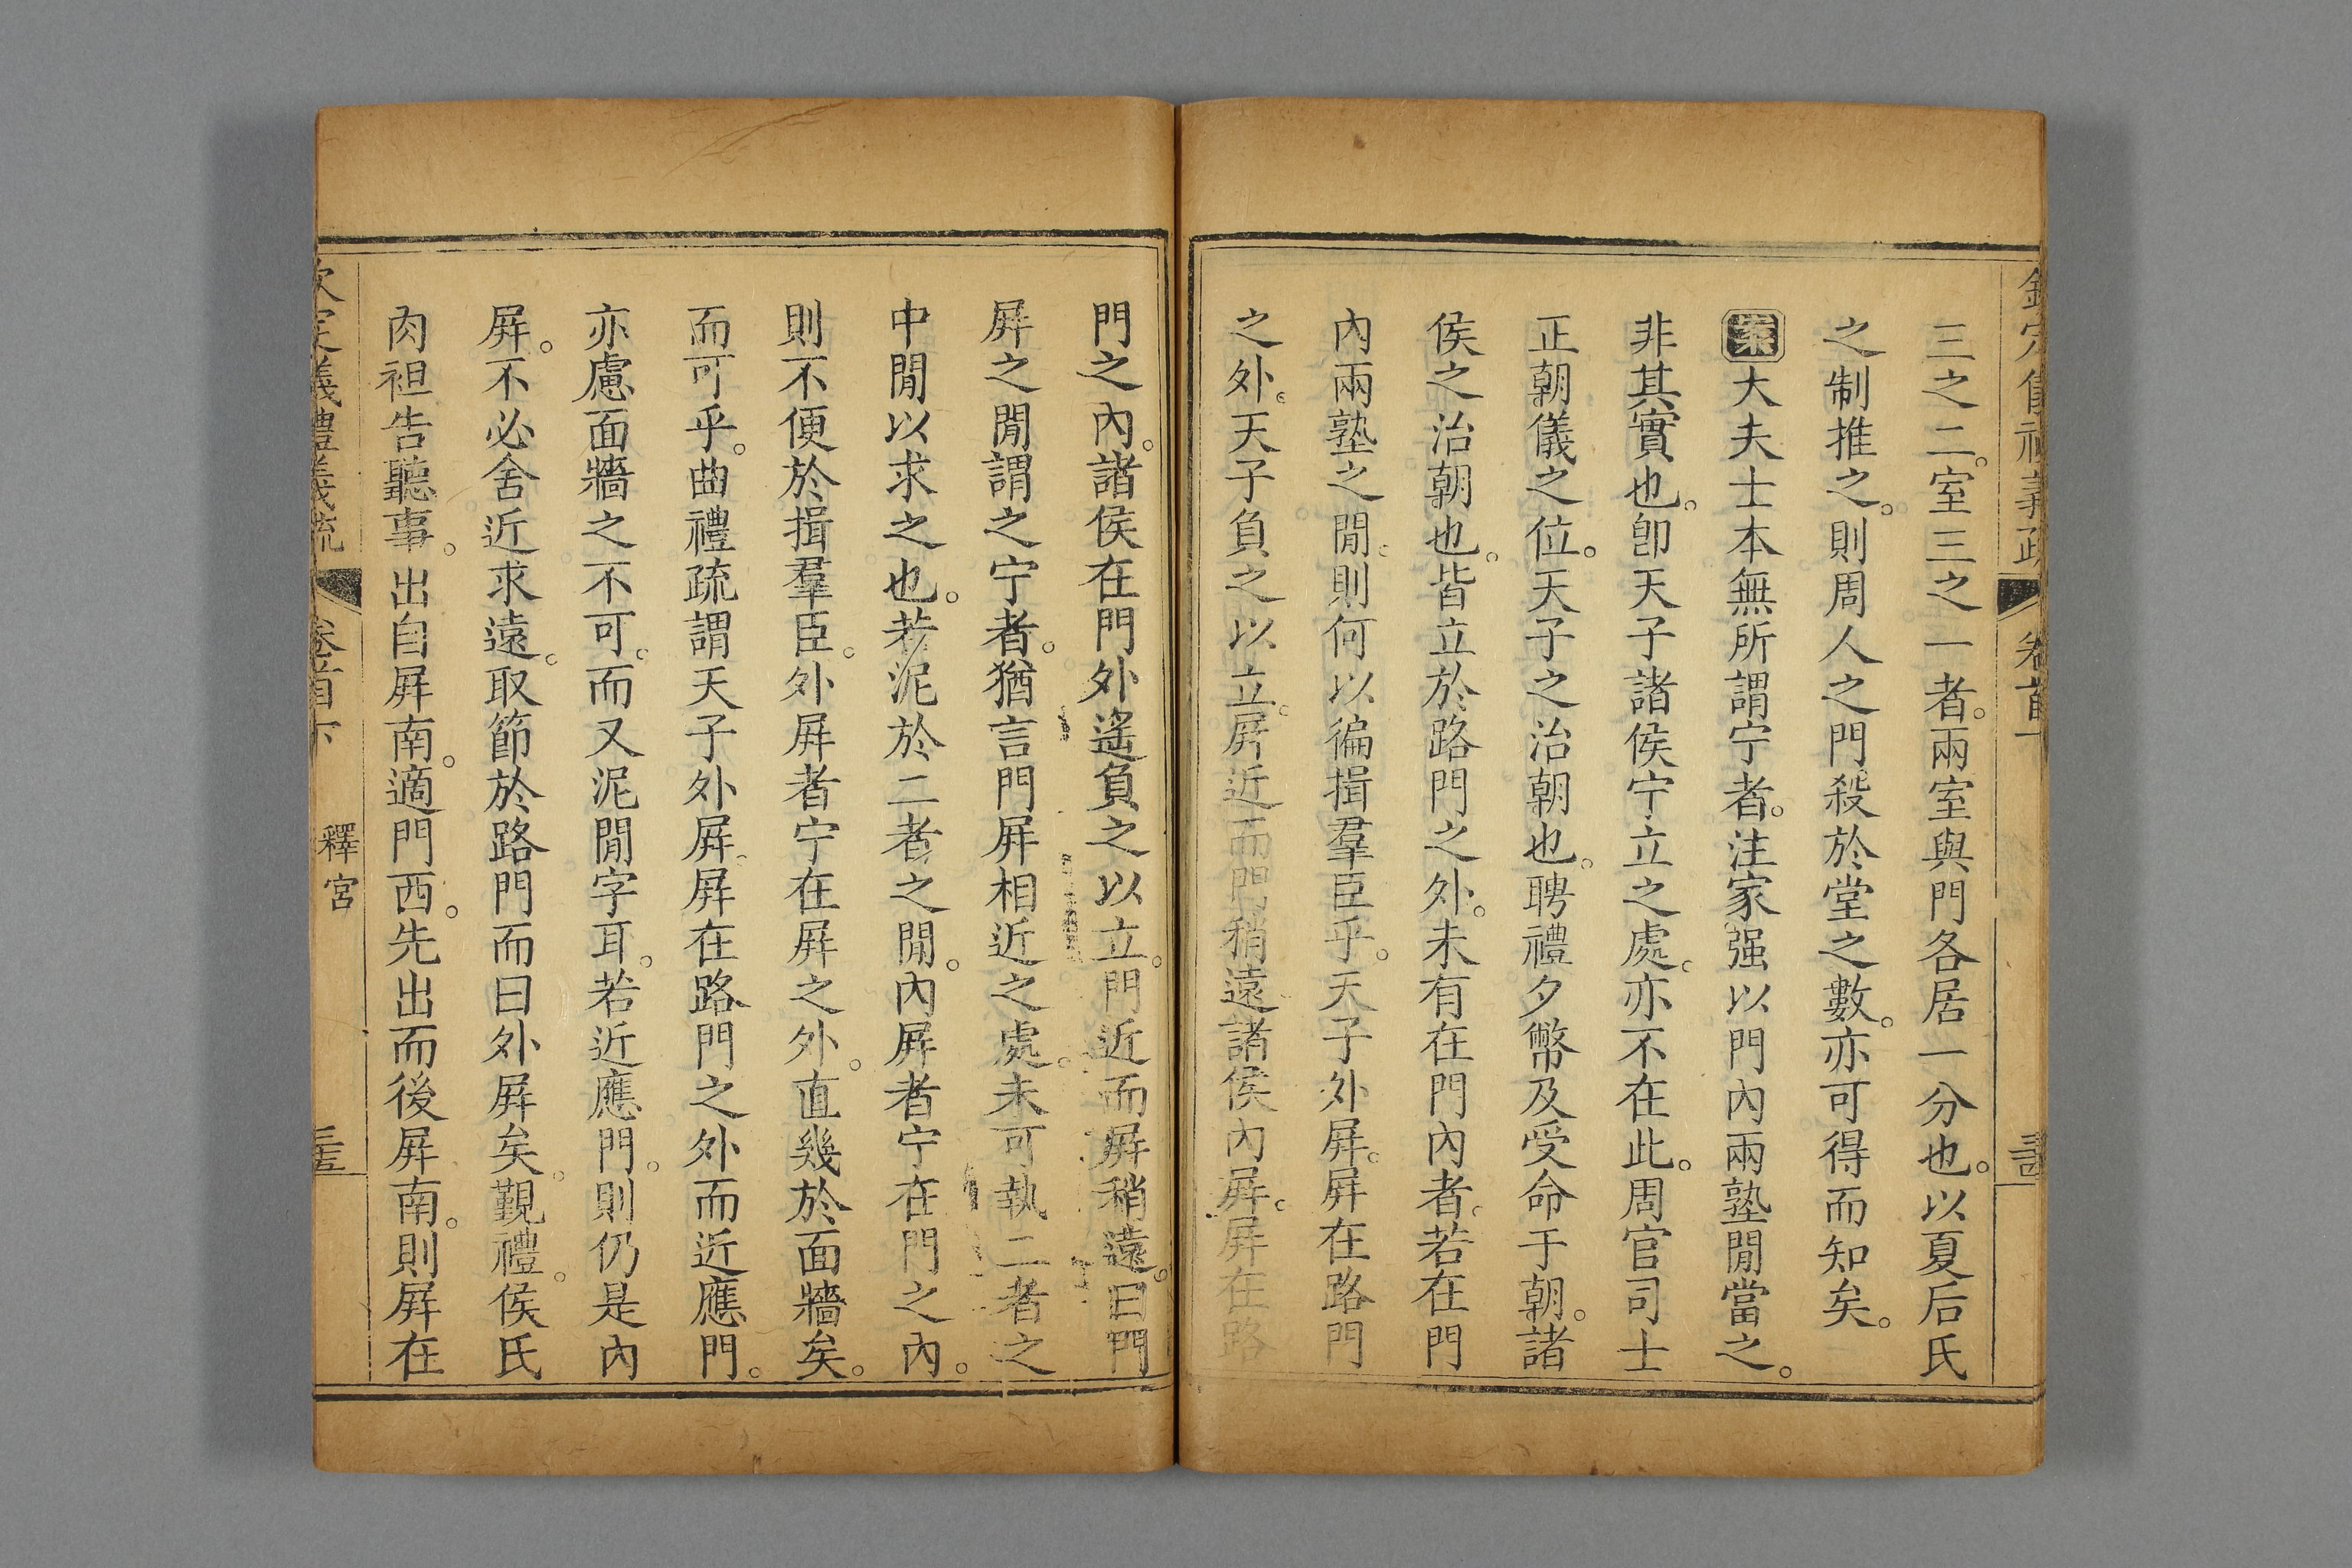 欽定儀禮義疏 卷首下
三之二。室三之一者。兩室與門各居一分也。以夏后氏
之制推之。則周人之門殺於堂之數。亦可得而知矣。
案大夫士本無所謂宁者。注家强以門內兩塾閒當之。
非其實也。卽天子諸侯宁立之處。亦不在此。周官司士
正朝儀之位。天子之治朝也。聘禮夕幣及受命于朝。諸
侯之治朝也。皆立於路門之外。未有在門內者。若在門
內兩塾之閒。則何以徧揖羣臣乎。天子外屛。屛在路門
之外。天子負之以立。屛近而門稍遠。諸侯內屛。屛在路
門之內。諸侯在門外遙負之以立。門近而屛稍遠。曰門
屛之閒謂之宁者。猶言門屛相近之處。未可執二者之
中閒以求之也。若泥於二者之閒。內屛者宁在門之內。
則不便於揖羣臣。外屛者宁在屛之外。直幾於面牆矣。
而可乎。曲禮疏謂天子外屛。屛在路門之外而近應門。
亦慮面牆之不可。而又泥閒字耳。若近應門。則仍是內
屛。不必舍近求遠。取節於路門而曰外屛矣。覲禮。侯氏
肉袒告聽事。出自屛南。適門西。先出而後屛南。則屛在
欽定儀禮義疏 卷首下 釋宮